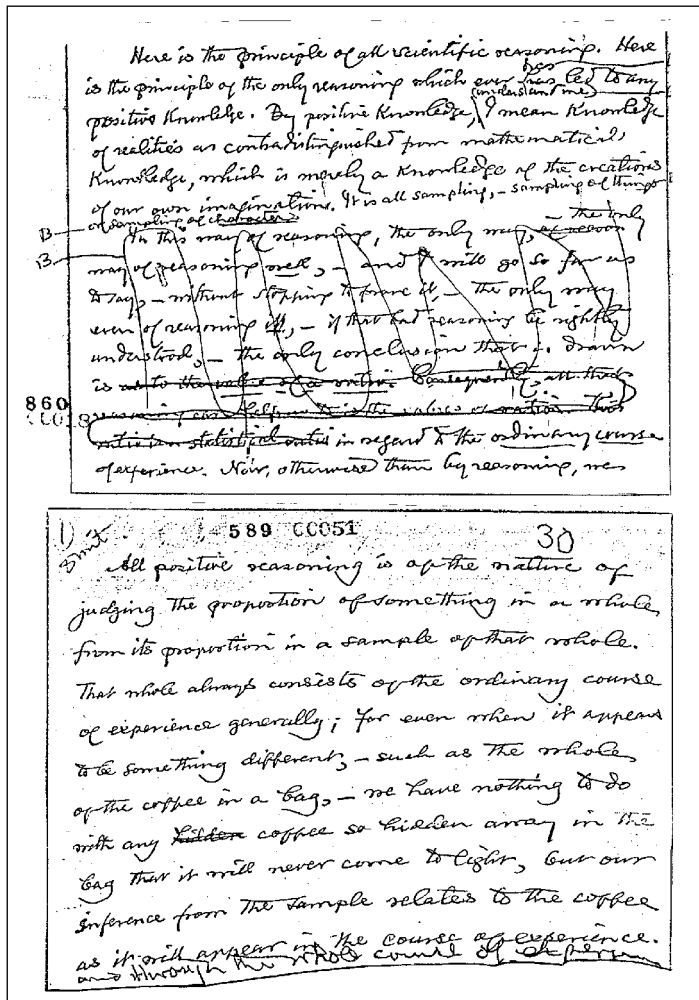 Here is the principle of all scientific reasoning. Here
has
is the principle of the only reasoning which ever has led to any
(understand me)
positive Knowledge. By positive Knowledge, I mean Knowledge
of realities as contradistinguished from mathematical
Knowledge, which is merely a Knowledge of the creations
of our own imaginations. It is all sampling, – sampling of things
or sampling of characters
B
In this way of reasoning, the only way, – the only
B
way of reasoning well, – and I will go so far as
to say, – without stopping to prove it, – the only way
even of reasoning ill, – if that bad reasoning be rightly
understood, – the only conclusion that is drawn
is as to the value of a ratio. Consequently, all that
860
reasoning can help us to is the values of ratios. This
CC018
ratio is a statistical ratio in regard to the ordinary course
of experience. Now, otherwise than by reasoning, we
1) 589 CC051 30
All positive reasoning is of the nature of
judging the proportion of something in a whole
from its proportion in a sample of that whole.
That whole always consists of the ordinary course
of experience generally; for even when it appears
to be something different, – such as the whole
of the coffee in a bag, – we have nothing to do
with any hidden coffee so hidden away in the
bag that it will never come to light, but our
inference from the sample relates to the coffee
as it will appear in the course of experience.
and through the whole course of experience